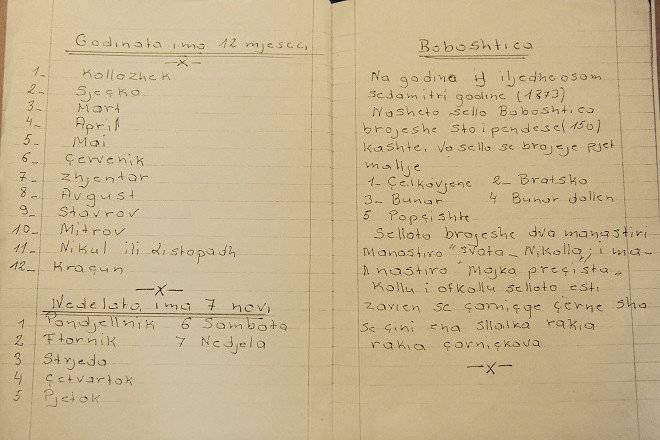 Godinata ima 12 mjeseci
—x—
1- Kollozhek
2- Sjeçko
3- Mart
4- April
5- Mai
6- Çervenik
7- Zhjentar
8- Avgust
9- Stavrov
10- Mitrov
11- Nikul ili Listopadh
12- Kraçun
—x—
Nedelata ima 7 novi
1 Pondjellnik 6 Sambota
2 Ftornik 7 Nedjela
3 Strjeda
4 Çetvartok
5 Pjetok
Boboshtica
Na godina iljedheosom
sedamitri godine (1873)
Nasheto sello Boboshtica
brojeshe stoipendese (150)
kashte, vo sello se brojeje pjet
mallje
1- Çelkovjene 2- Bratsko
3- Bunar 4 Bunar dollen
5 Popçishte
Selloto brojeshe dva manastiri
Manastiro "svata Nikolla", i ma-
nastiro "Majka preçista"
Kollu i ofkollu selloto esti
zavien se çarniçge çerne sho
se çini ena sllatka rakia
rakia çarniçkova
—x—